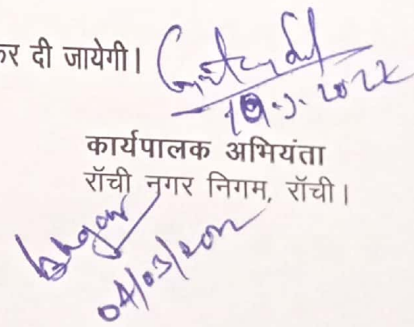 कर दी जायेगी।
कार्यपालक अभियंता
राँची नगर निगम, राँची।
04/03/2022